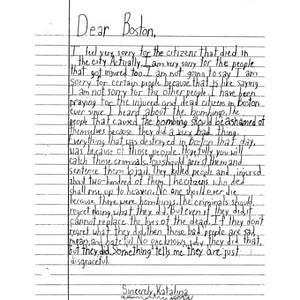 Dear Boston,
I feel very sorry for the citizens that died in
the city. Actually, I am very sorry for the people
that got injured too. I am not going to say I am
sorry for certain people because that is like saying
I am not sorry for the other people. I have been
praying for the injured and dead citizens in Boston
ever since I heard about the bombings. The
people that caused the bombing should be ashamed of
themselves because they did a very bad thing.
Everything that was destroyed in Boston that day,
was because of those people. Hopefully you will
catch those criminals. You should arrest them and
sentence them to jail. They killed people and injured
about two-hundred of them. The citizens who died
shall rise up to heaven. No one should ever die
because there were bombings. The criminals should
regret doing what they did. But even if they did it
cannot replace the lives of the dead. If they don't
regret what they did, then those bad people are sad,
mean, and hateful. No one knows why they did that,
but they did. Something tells me they are just
disgraceful.
Sincerely, Katalina